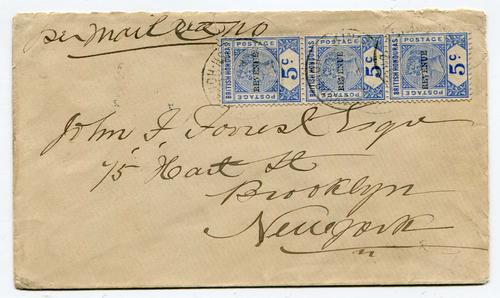 per Mail via NO
POSTAGE POSTAGE POSTAGE
BRITISH HONDURAS REVENUE 5c BRITISH HONDURAS REVENUE 5c BRITISH HONDURAS REVENUE 5c
POSTAGE POSTAGE POSTAGE
John F. Forrest Esqr
75 Hart St
Brooklyn
New York